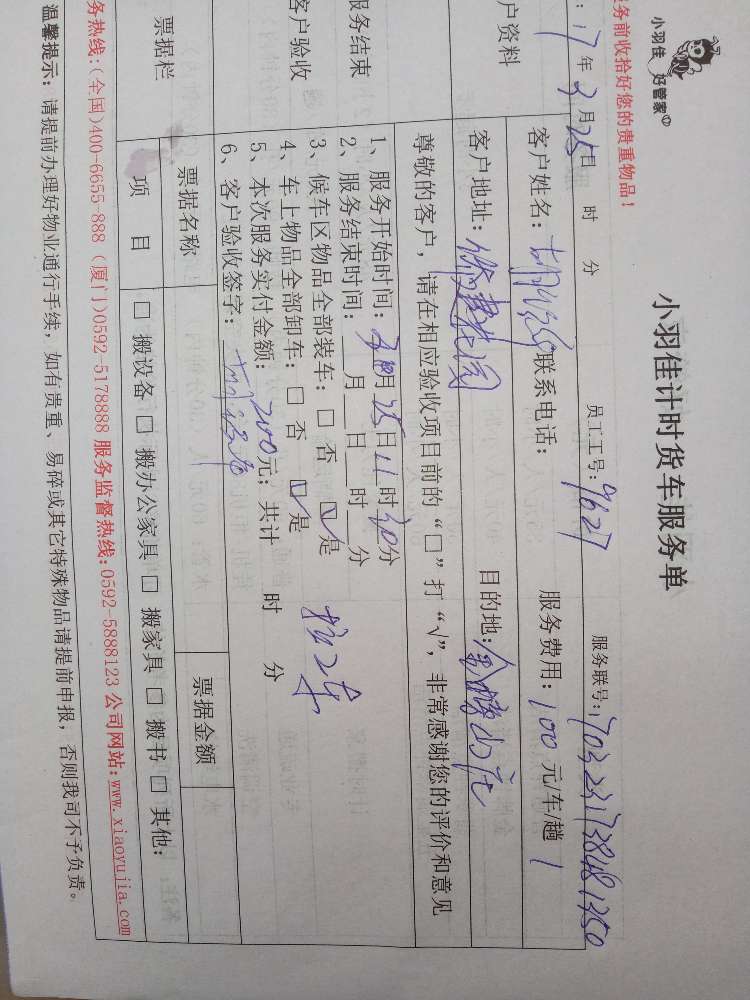 小羽佳 好管家
务前收拾好您的贵重物品!
小羽佳计时货车服务单
: 17年3月25日 时 分 员工工号: 9627 服务联号: 1703231738481350
户资料
客户姓名: 联系电话: 服务费用: 100 元/车/趟 1
客户地址: 目的地:
尊敬的客户, 请在相应验收项目前的“□”打“√”, 非常感谢您的评价和意见
服务结束
客户验收
1、服务开始时间: 月25日11时30分
2、服务结束时间: 月 日 时 分
3、候车区物品全部装车: □ 否 ☑是
4、车上物品全部卸车: □ 否 ☑是
5、本次服务实付金额: 200元; 共计 时 分
6、客户验收签字:
票据栏
票据名称 票据金额
项 目 □ 搬设备 □ 搬办公家具 □ 搬家具 □ 搬书 □ 其他:
务热线: (全国)400-6655-888 (厦门)0592-5178888 服务监督热线: 0592-5888123 公司网站: www.xiaoyujia.com
温馨提示: 请提前办理好物业通行手续, 如有贵重、易碎或其它特殊物品请提前申报, 否则我司不予负责。